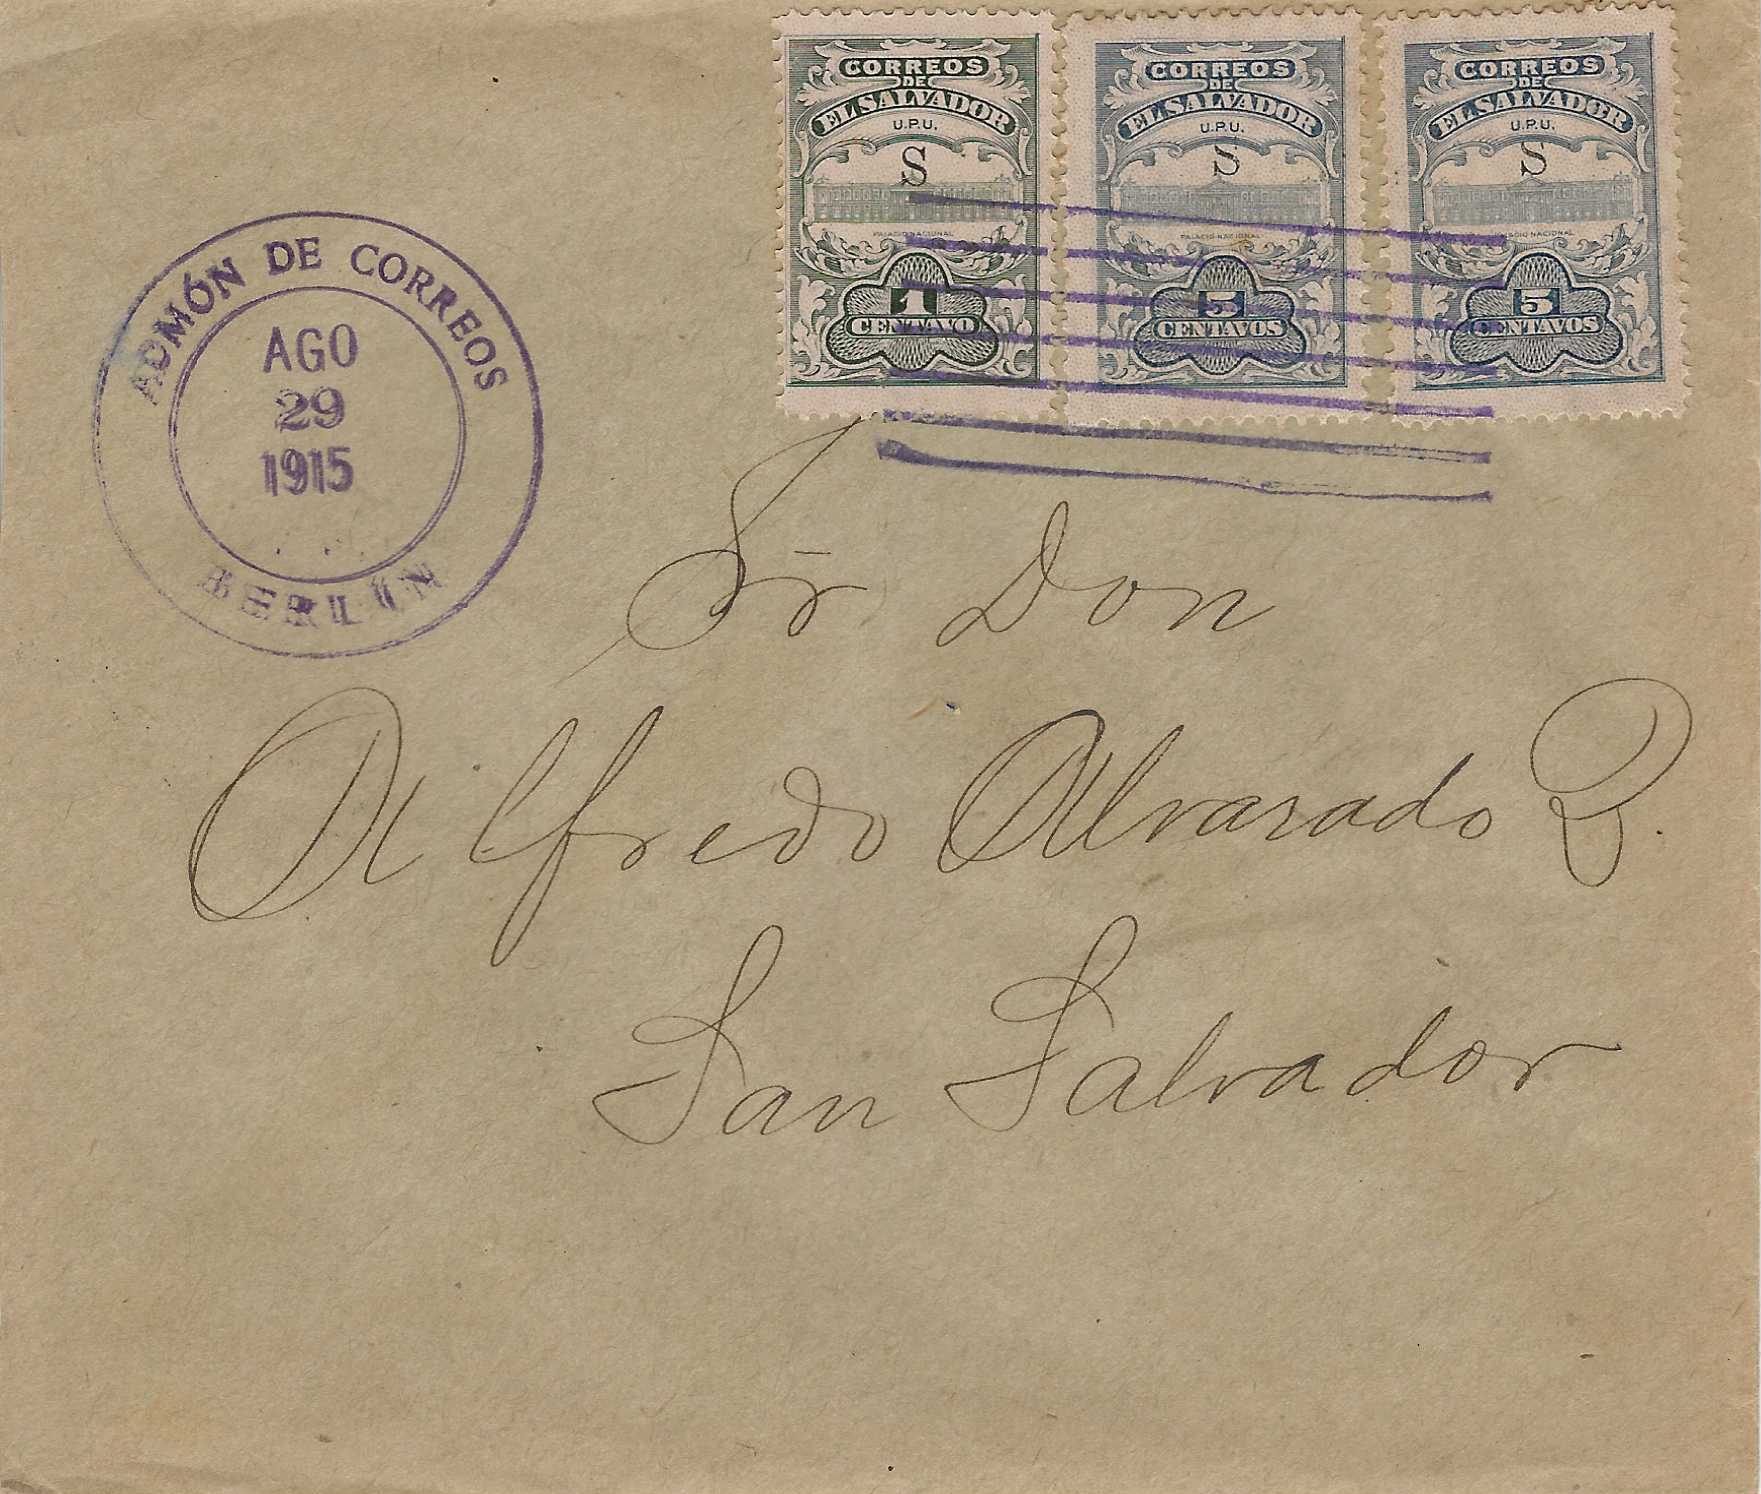 CORREOS
DE
EL SALVADOR
U.P.U.
S
PALACIO NACIONAL
1
CENTAVO
CORREOS
DE
EL SALVADOR
U.P.U.
S
PALACIO NACIONAL
5
CENTAVOS
CORREOS
DE
EL SALVADOR
U.P.U.
S
PALACIO NACIONAL
5
CENTAVOS
ADMÓN DE CORREOS
AGO
29
1915
BERLÍN
Sr Don
Alfredo Alvarado
San Salvador